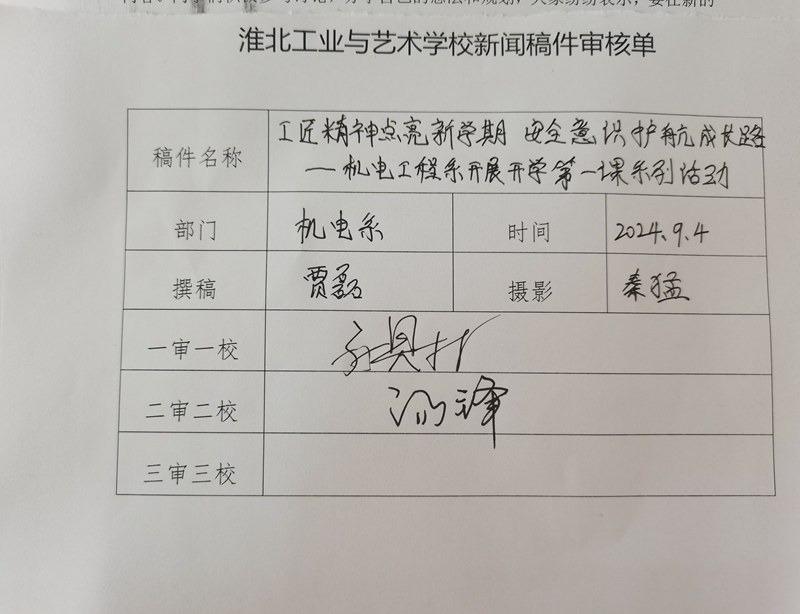 淮北工业与艺术学校新闻稿件审核单
稿件名称 工匠精神点亮新学期 安全意识护航成长路
——机电工程系开展开学第一课系列活动
部门 机电系 时间 2024.9.4
撰稿 贾磊 摄影 秦猛
一审一校
二审二校
三审三校